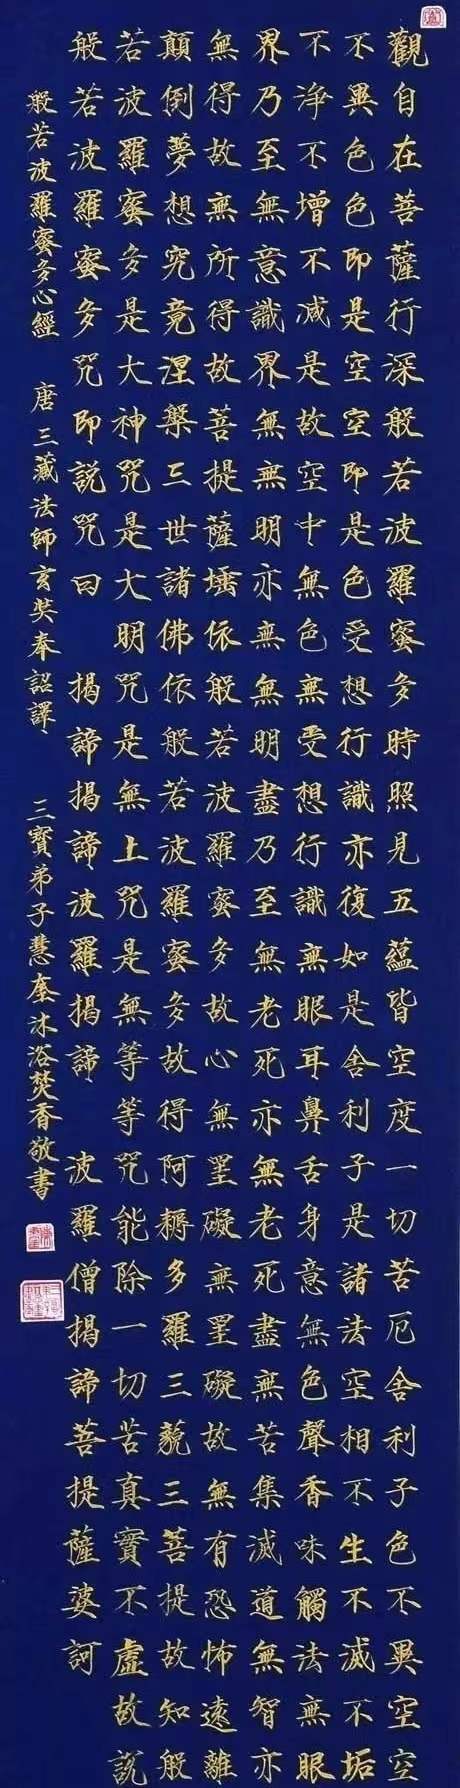 觀自在菩薩行深般若波羅蜜多時照見五蘊皆空度一切苦厄舍利子色不異空空
不異色色即是空空即是色受想行識亦復如是舍利子是諸法空相不生不滅不垢
不淨不增不減是故空中無色無受想行識無眼耳鼻舌身意無色聲香味觸法無眼
界乃至無意識界無無明亦無無明盡乃至無老死亦無老死盡無苦集滅道無智亦
無得故無所得故菩提薩埵依般若波羅蜜多故心無罣礙無罣礙故無有恐怖遠離
顛倒夢想究竟涅槃三世諸佛依般若波羅蜜多故得阿耨多羅三藐三菩提故知般
若波羅蜜多是大神咒是大明咒是無上咒是無等等咒能除一切苦真實不虛故說
般若波羅蜜多咒即說咒曰 揭諦揭諦波羅揭諦 波羅僧揭諦菩提薩婆訶
般若波羅蜜多心經 唐三藏法師玄奘奉詔譯 三寶弟子慧奎沐浴焚香敬書